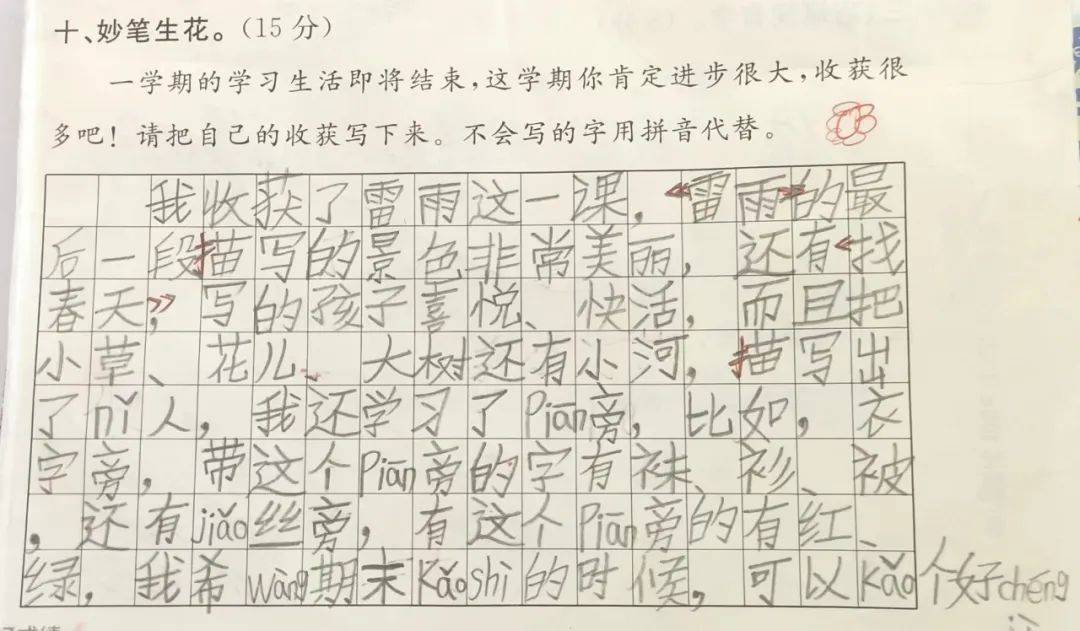 十、妙笔生花。（15 分）
一学期的学习生活即将结束，这学期你肯定进步很大，收获很
多吧！请把自己的收获写下来。不会写的字用拼音代替。
我收获了雷雨这一课，《雷雨》的最
后一段描写的景色非常美丽，还有《找
春天》，写的孩子喜悦、快活，而且把
小草、花儿、大树还有小河，描写出
了nǐ人，我还学习了Piān旁，比如，衣
字旁，带这个Piān旁的字有袜、衫、被
，还有jiǎo丝旁，有这个Piān旁的有红、
绿，我希wàng期末Kǎoshì的时候，可以kǎo个好chéng